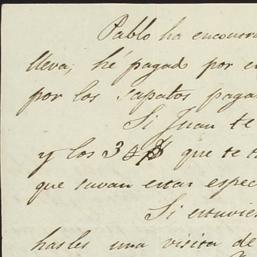 Pablo ha encontr
lleva; hé pagado por e
por los zapatos paga
Si Juan te
y los 30$ que te
que suvan estas espec
Si estuvie
hasles una visita de